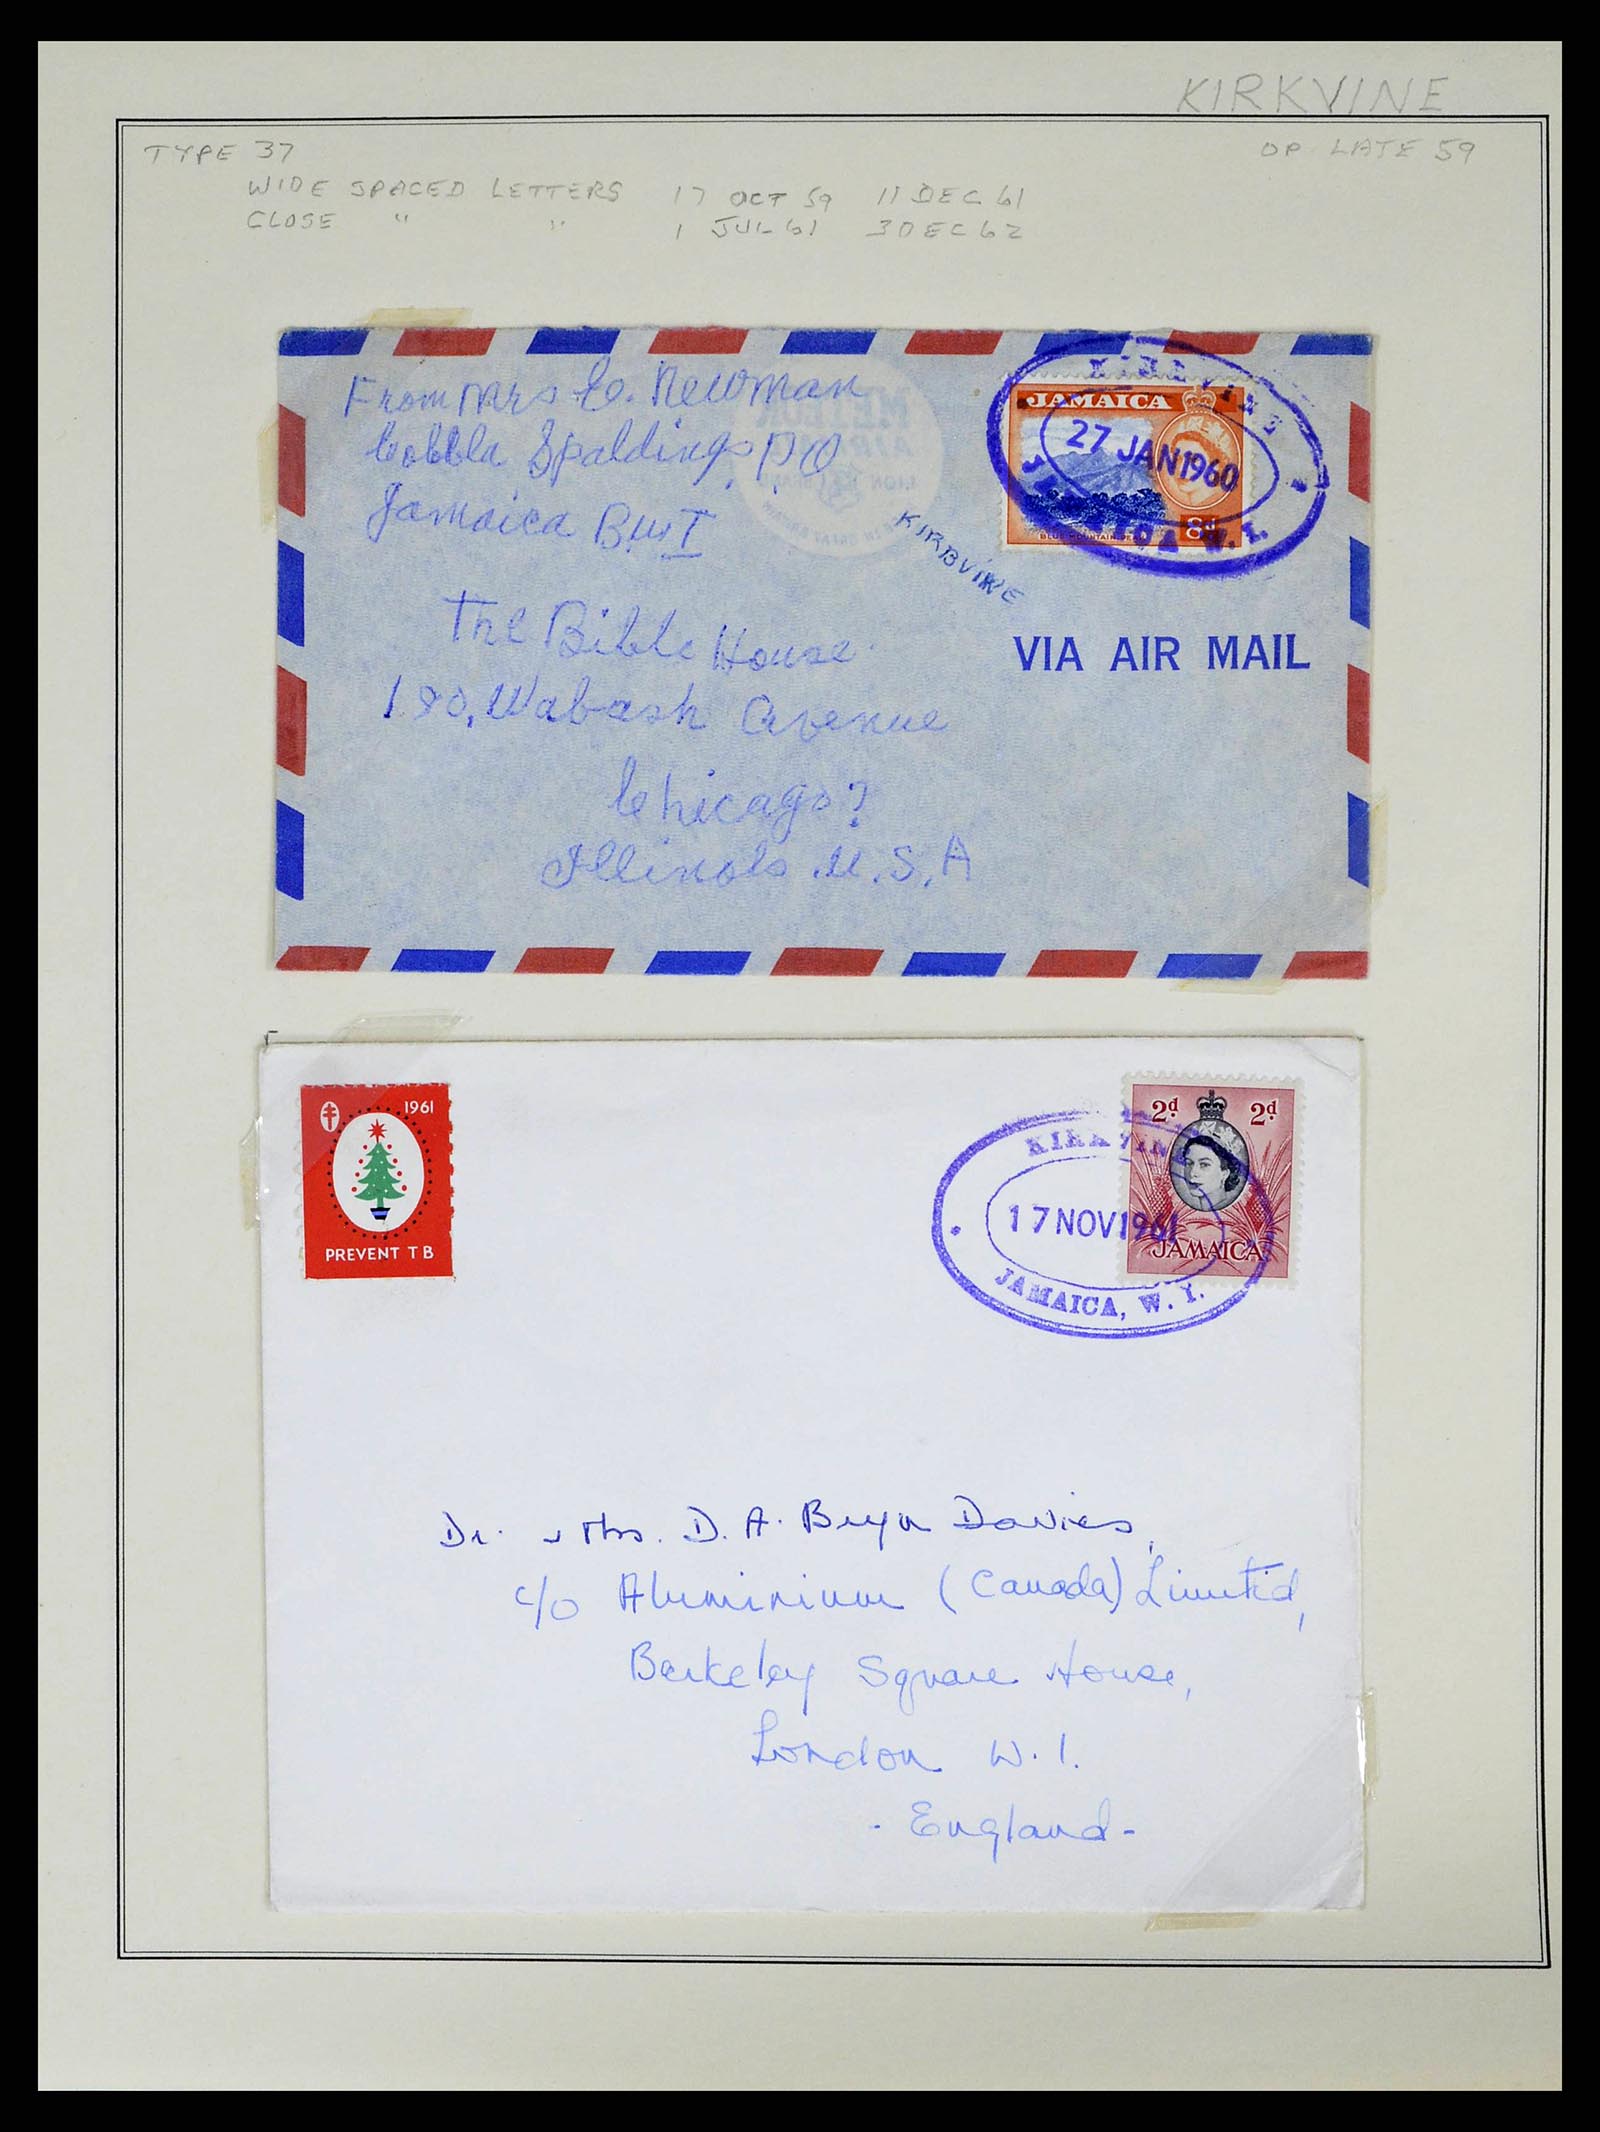 KIRKVINE
TYPE 37
OP. LATE 59
WIDE SPACED LETTERS 17 OCT 59 11 DEC 61
CLOSE " " 1 JUL 61 3 DEC 62
From Mrs C. Newman
Cobbla Spaldings P.O
Jamaica B.W.I
KIRKVINE
JAMAICA
27 JAN 1960
8d
BLUE MOUNTAIN PEAK
W. I.
KIRBVINE
The Bible House
VIA AIR MAIL
180, Wabash Avenue
Chicago?
Illinois U.S.A
1961
PREVENT TB
2d 2d
JAMAICA
KIRKVINE
17 NOV 1961
JAMAICA, W. I.
Dr. & Mrs. D. A. Bryn Davies,
c/o Aluminium (Canada) Limited,
Berkeley Square House,
London W.1.
- England -